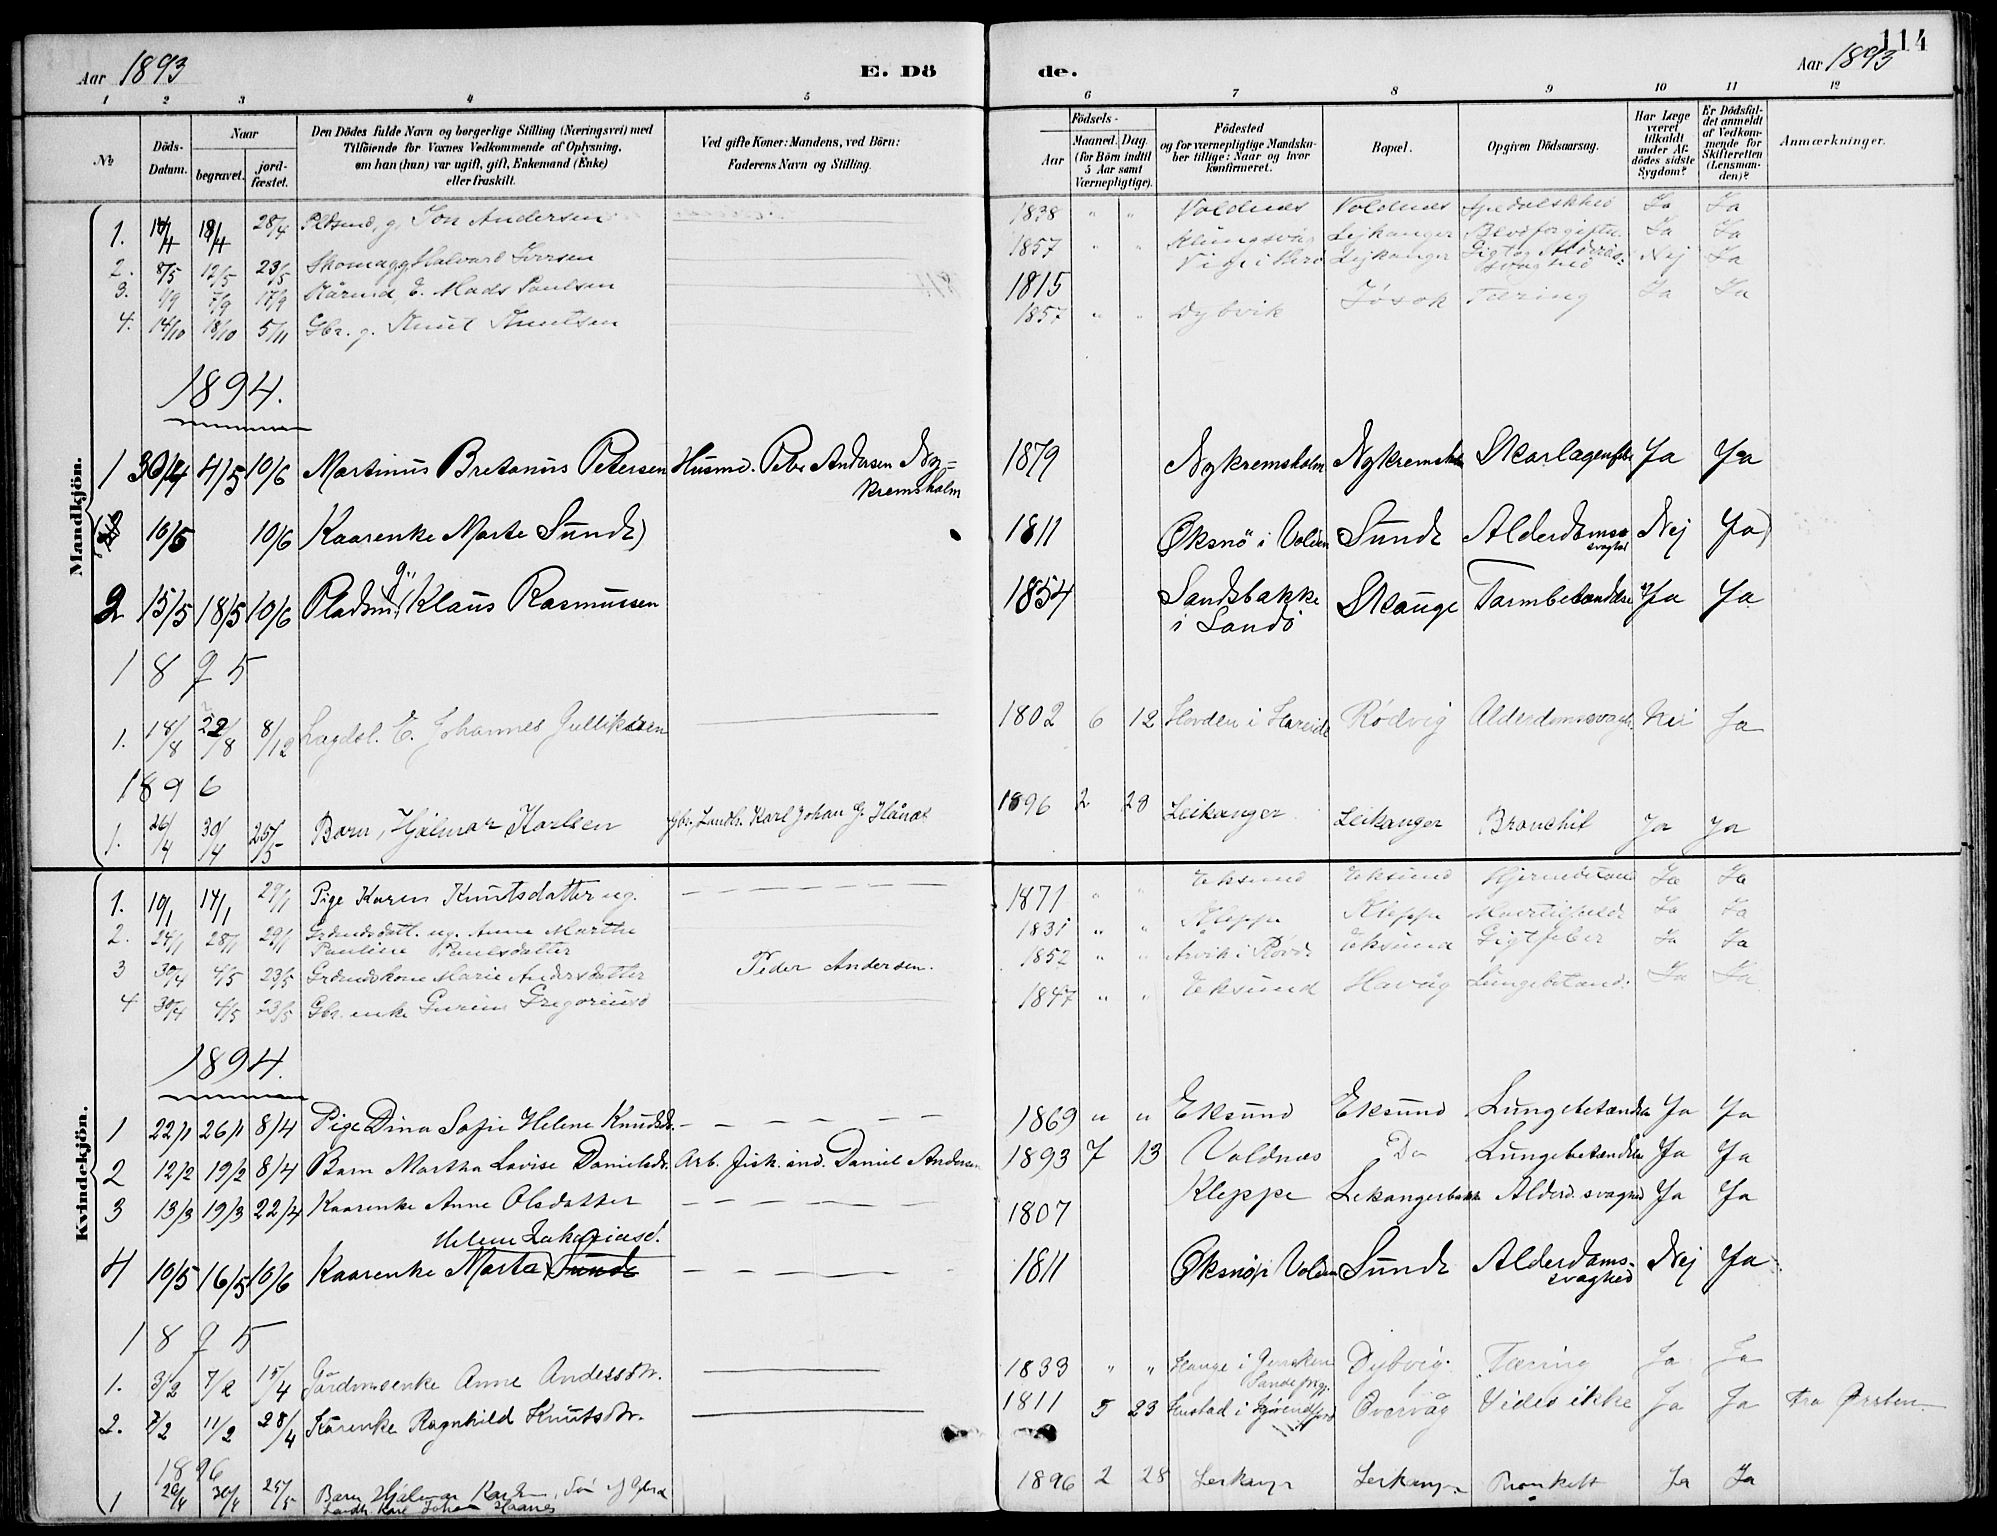 114
Aar 1893
E. Dö
de.
Aar 1893
1 2 3 4 5 6 7 8 9 10 11 12
No
Döds-Datum.
Naar
begravet.
jord-fæstet.
Den Dödes fulde Navn og borgerlige Stilling (Næringsvei) med
Tilföiende for Voxnes Vedkommende af Oplysning,
om han (hun) var ugift, gift, Enkemand (Enke)
eller fraskilt.
Ved gifte Koner: Mandens, ved Börn:
Faderens Navn og Stilling.
Födsels-
Aar
Maaned. Dag.
(for Börn indtil
5 Aar samt
Værnepligtige).
Födested
og for værnepligtige Mandska-
ber tillige: Naar og hvor
konfirmeret.
Bopæl.
Opgiven Dödsaarsag.
Har Læge
været
tilkaldt
under Af-
dödes sidste
Sygdom?
Er Dödsfal-
det anmeldt
af Vedkom-
mende for
Skifteretten
(Lensman-
den)?
Anmærkninger.
Mandkjön.
1. 18/4 28/4 Pldsmd, g, Jon Andersen 1838 " " Voldnæs Voldnæs Spedalskhed Ja Ja
2. 8/5 12/5 23/5 Halvard Iversen 1857 " " Lejkanger Blodforgiftn. Ja Ja
3. 7/9 17/9 Kårmd, E. Mads Paulsen 1815 Lejkanger Nej Ja
4. 14/10 18/10 5/11 Gbr. g. Knut Knutsen 1857 " " Dybvik Jøsok Tæring Ja Ja
1894.
1 30/4 4/5 10/6 Martinus Bretanus Petersen Husmd. Peter Andersen Ny=
kremsholm 1879 Nykremsholm Nykremsholm Skarlagenfeber Ja Ja
10/5 10/6 Kaarenke Marte Sunde) 1811 Øksnö i Volden Sunde Alderdoms-
svaghed Nej Ja)
2 15/5 18/5 10/6 Pladsmd, g. Klaus Rasmussen 1854 Sandsbakke
i Sandö Skauge Tarmbetændelse Ja Ja
1895
1. 18/8 22/8 8/12 Lægdsl. E. Johannes Gulliksen 1802 6 12 Hovden i Hareide Rødvig Alderdomssvagh. Nei Ja
1896
1. 26/4 30/4 25/5 Barn, Hjalmar Karlsen Karl Johan 1896 2 28 Leikanger Leikanger Bronchit Ja Ja
Kvindekjön.
1. 10/1 14/1 29/1 Pige Karen Knutsdatter ug. 1871 " " Eksund Eksund Ja Ja
2. 24/1 28/1 29/1 ug. Anne Marthe
Pauline Paulsdatter 1831 " " Kleppe Kleppe Ja Ja
3 30/4 4/5 23/5 Marie Andersdatter Peder Andersen. 1852 " " Eksund Gigtfeber Ja Ja
4 30/4 4/5 23/5 Gbr. enke Gurine Gregoriusd 1847 " " Eksund Havåg Lungebetænd. Ja Ja
1894.
1 22/1 26/1 8/4 Pige Dina Sofie Helene Knudsdt. 1869 " " Eksund Eksund Lungebetændelse Ja Ja
2 12/2 19/2 8/4 Barn Martha Lovise Danielsdt. Arb. fisk. ind. Daniel Andersen 1893 7 13 Voldnæs Do Lungebetændelse Ja Ja
3 13/3 19/3 22/4 Kaarenke Anne Olsdatter 1807 Kleppe Lekangerbakk Alderd. svaghed Ja Ja
Helene Zakariasd.
4 10/5 16/5 10/6 Kaarenke Marte Sunde 1811 Øksnö i Volden Sunde Alderdoms-
svaghed Nej Ja
1895
1. 3/2 7/2 15/4 Gårdmsenke Anne Andersdtr. 1833 " " Hauge i Gursken
Sande prgj. Dybvig. Tæring Ja Ja
2. 7/2 11/2 28/4 Kårenke Ragnhild Knutsdtr. 1811 5 23 Hustad i Hjørendfjord Overvåg Vides ikke Ja Ja Fra Ørsten
1896
1 26/4 30/4 25/5 Barn Hjalmar Karlsen, Søn af
Landh. Karl Johan Haanes 1896 2 28 Leikanger Leikanger Ja Ja